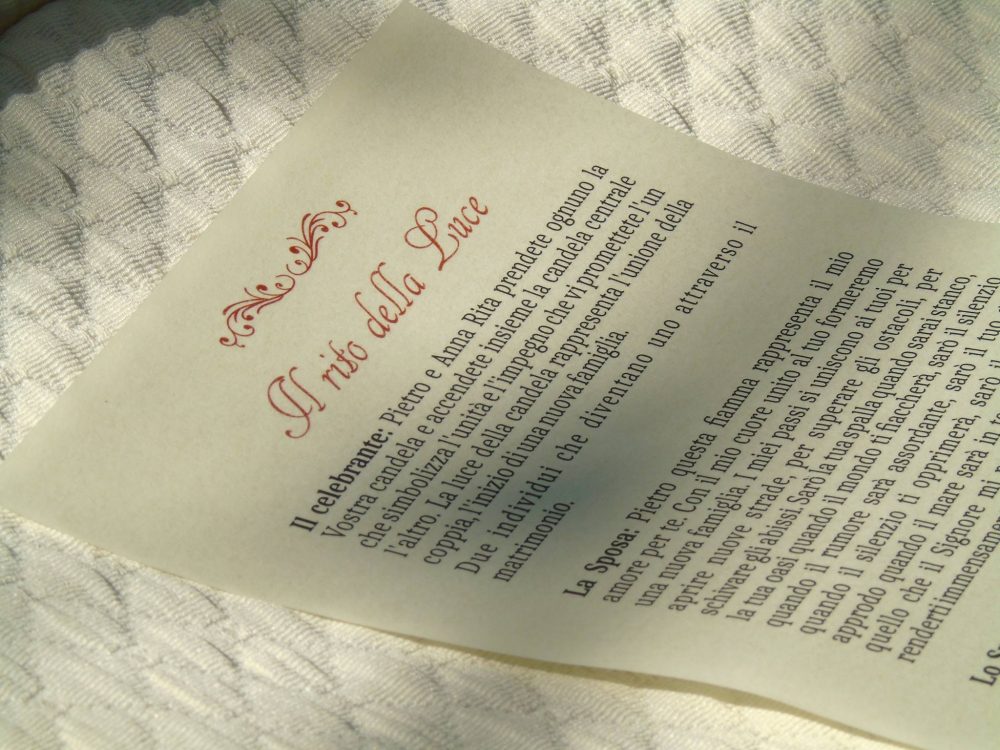 Il rito della Luce
Il celebrante: Pietro e Anna Rita prendete ognuno la
Vostra candela e accendete insieme la candela centrale
che simbolizza l'unità e l'impegno che vi promettete l'un
l'altro. La luce della candela rappresenta l'unione della
coppia, l'inizio di una nuova famiglia.
Due individui che diventano uno attraverso il
matrimonio.
La Sposa: Pietro questa fiamma rappresenta il mio
amore per te. Con il mio cuore unito al tuo formeremo
una nuova famiglia. I miei passi si uniscono ai tuoi per
aprire nuove strade, per superare gli ostacoli, per
schivare gli abissi. Sarò la tua spalla quando sarai stanco,
la tua oasi quando il mondo ti fiaccherà, sarò il silenzio
quando il rumore sarà assordante, sarò il tuo
quando il silenzio ti opprimerà, sarò il
approdo quando il mare sarà in
quello che il Signore mi
renderti immensame
Lo S